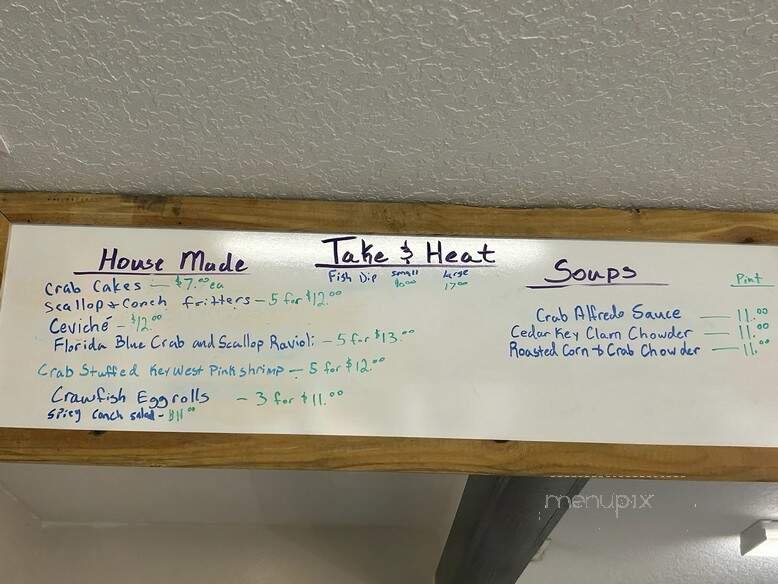 House Made
Crab Cakes — $7.00 ea
Scallop & Conch fritters – 5 for $12.00
Ceviché – $12.00
Florida Blue Crab and Scallop Ravioli – 5 for $13.00
Crab Stuffed Key West Pink shrimp – 5 for $12.00
Crawfish Eggrolls – 3 for $11.00
Spicy Conch salad – $11.00
Take & Heat
Fish Dip small large
10.00 17.00
Soups
Pint
Crab Alfredo Sauce — 11.00
Cedar Key Clam Chowder — 11.00
Roasted Corn & Crab Chowder — 11.00
menupix